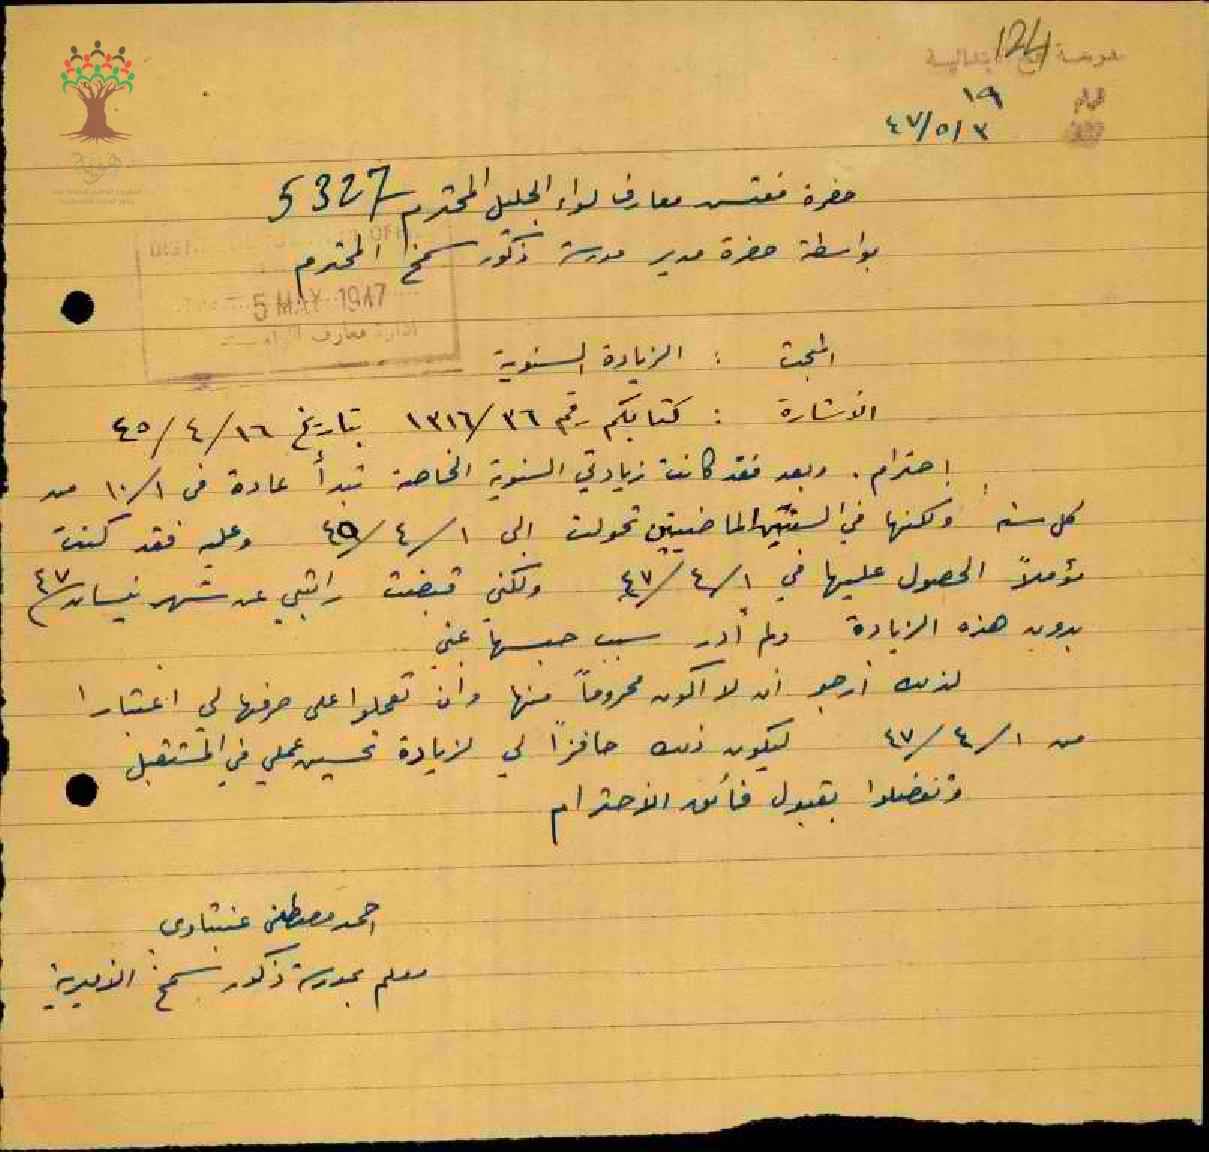 124
مدرسة سمخ الابتدائية
١٩
٤٧/٥/٣
حضرة مفتش معارف لواء الجليل المحترم 5327
بواسطة حضرة مدير مدرسة ذكور سمخ المحترم
5 MAY 1947
ادارة معارف
المبحث : الزيادة السنوية
الاشارة : كتابكم رقم ١٣١٦/٣٦ بتاريخ ٤٥/٤/١٦
احترام . وبعد فقد كانت زيادتي السنوية الخاصة تبدأ عادة في ١٠/١ من
كل سنه ولكنها في السنتين الماضيتين تحولت الى ٤٥/٤/١ وعليه فقد كنت
مؤملاً الحصول عليها في ٤٧/٤/١ ولكني قبضت راتبي عن شهر نيسان/٤٧
بدون هذه الزيادة ولم أدر سبب حبسها عني
لذلك أرجو أن لا اكون محروماً منها وأن تعملوا على صرفها لي اعتبارا
من ٤٧/٤/١ ليكون ذلك حافزاً لي لزيادة تحسين عملي في المستقبل
وتفضلوا بقبول فائق الاحترام
احمد مصطفى عنبتاوي
معلم بمدرسة ذكور سمخ الاميرية
هوية